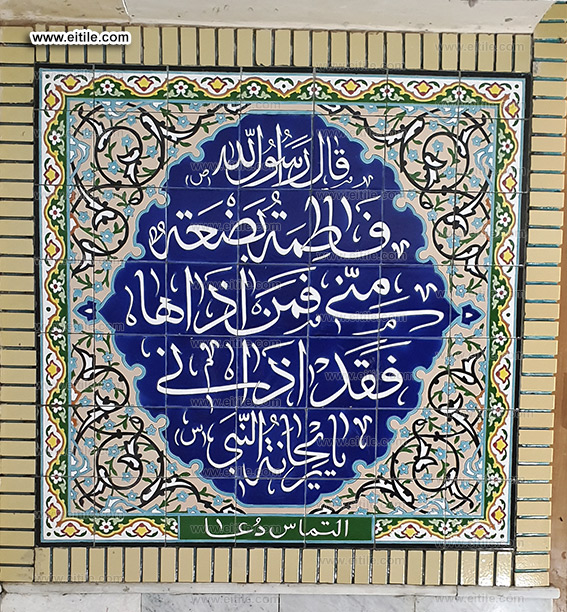 www.eitile.com
قال رسول الله (ص)
فاطمة بضعة
منی فمن اذاها
فقد اذانی
یا ریحانة النبی (س)
التماس دعا